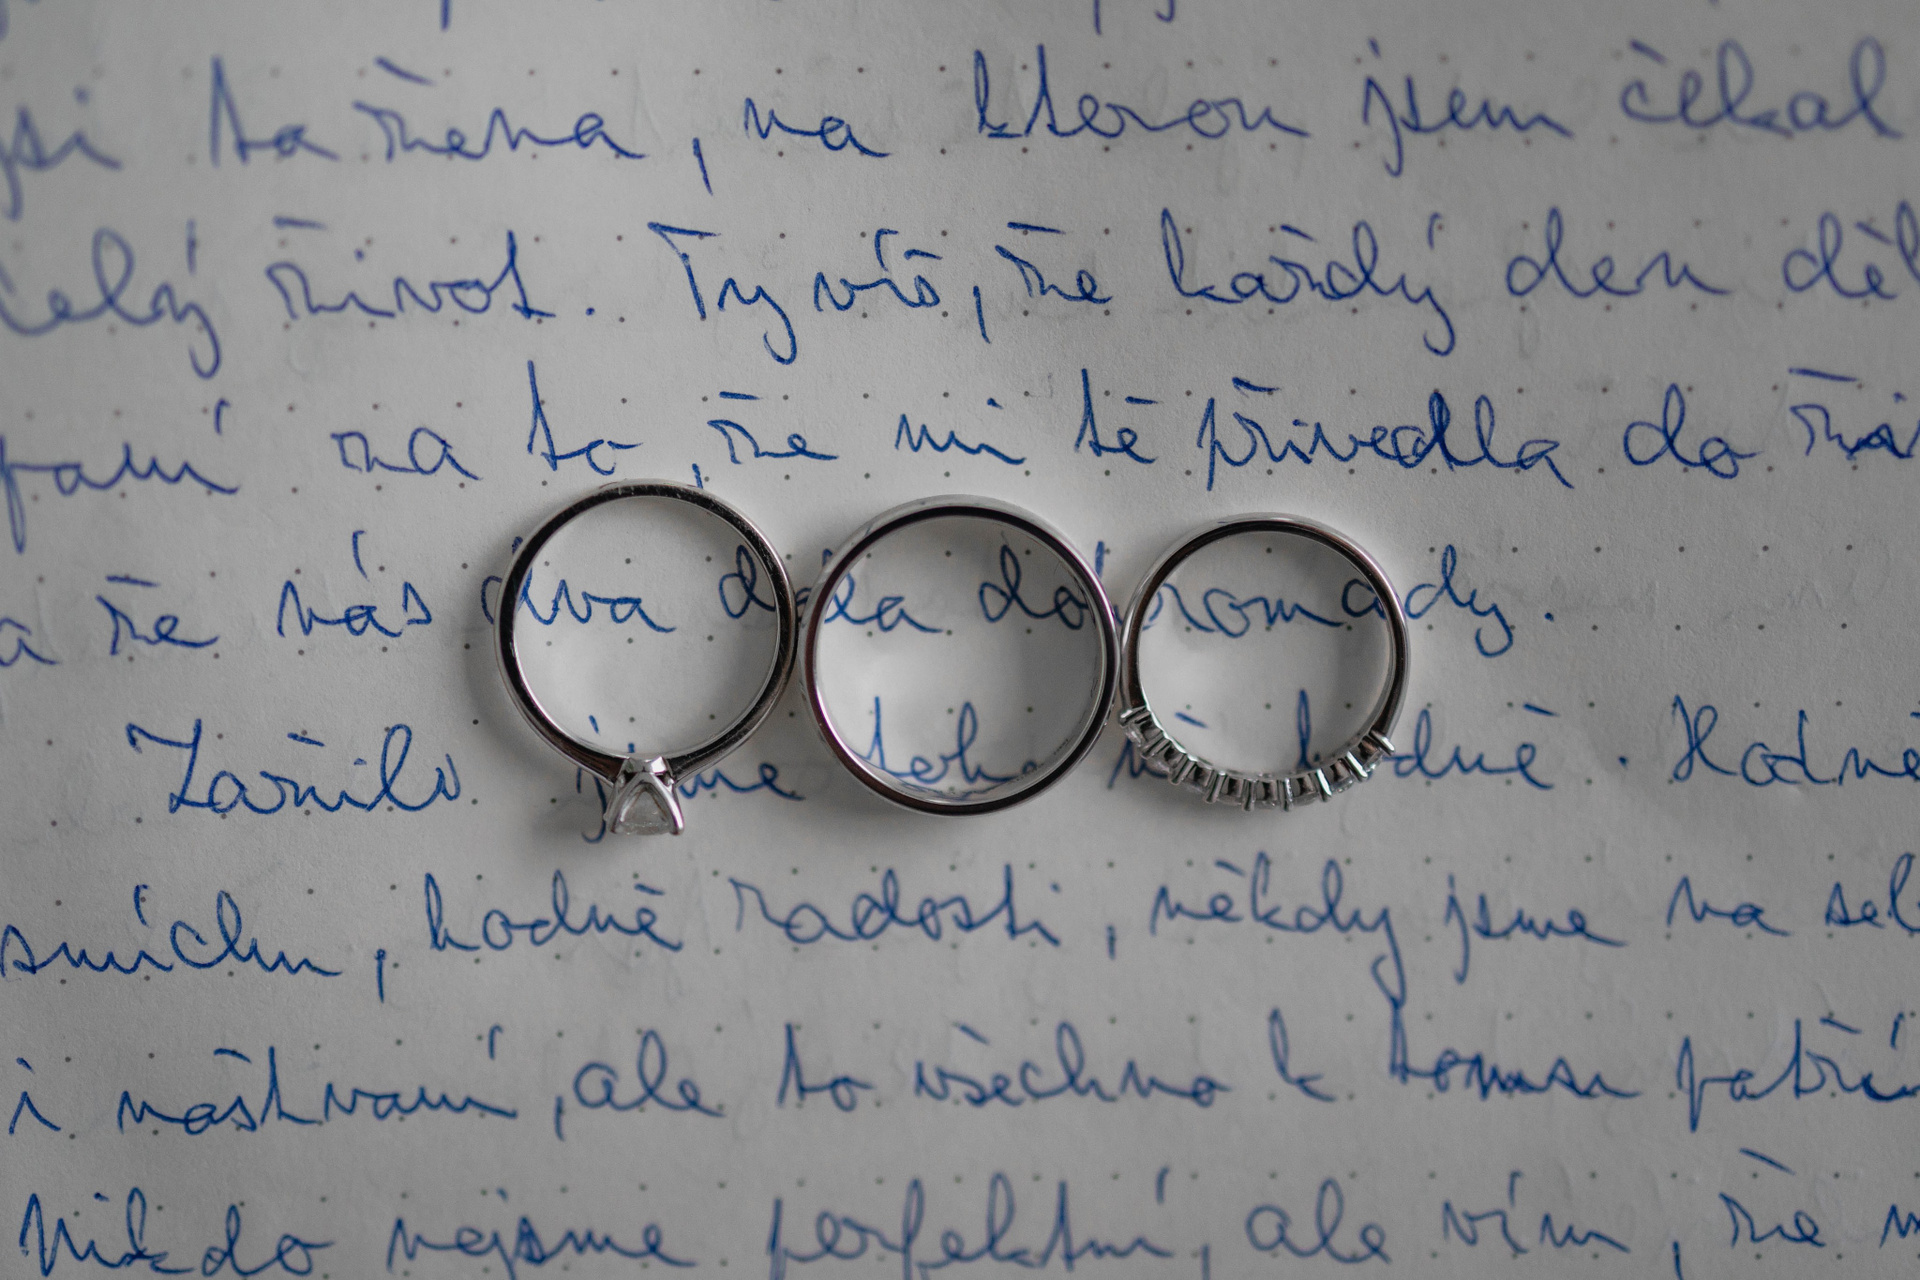 jsi ta žena, na kterou jsem čekal
celý život. Ty víš, že každý den
za to, že mi tě přivedla do
a že nás dva dala dohromady.
Zažili jsme toho hodně. Hodně
smíchu, hodně radosti, někdy jsme na
i naštvaní, ale to všechno k tomu patří
Nikdo nejsme perfektní, ale vím, že